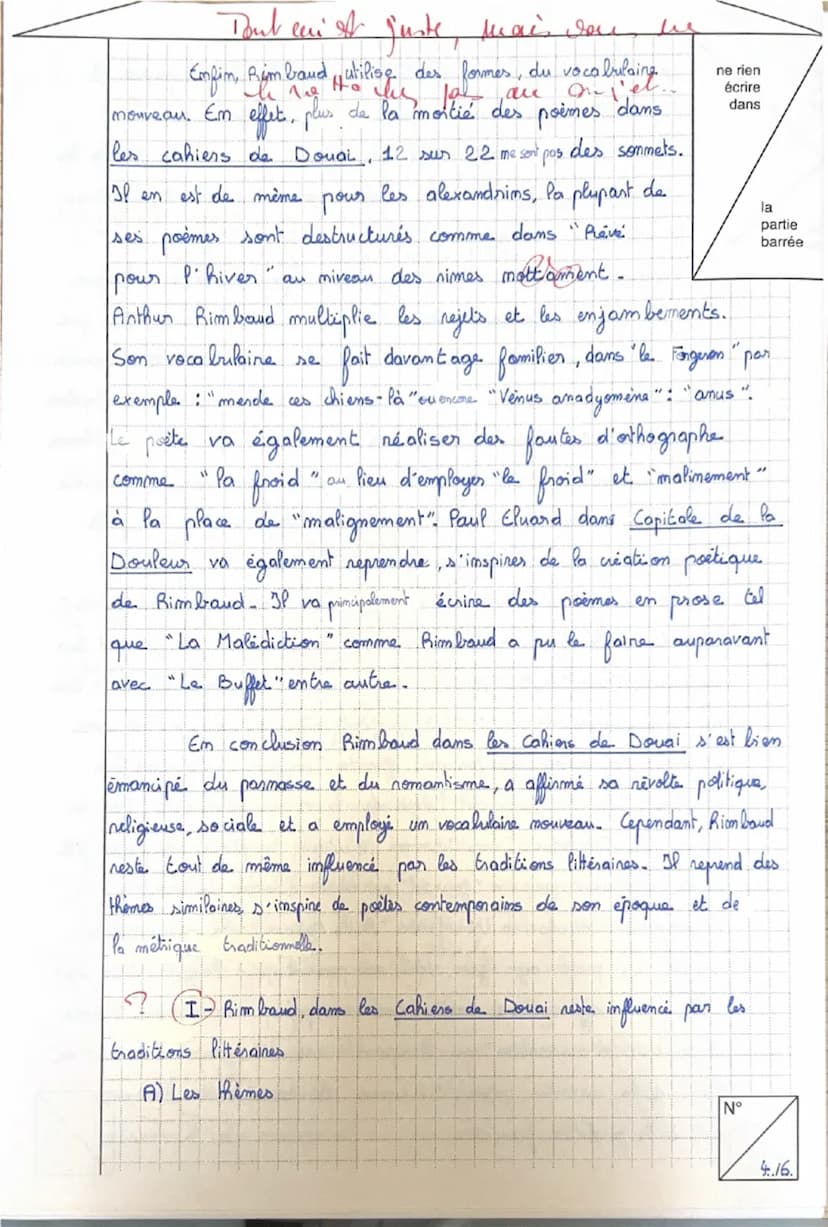 Tout ceci est juste, mais vous ne
le rattachez pas au sujet..
Enfin, Rimbaud utilise des formes, du vocabulaire
nouveau. En effet, plus de la moitié des poèmes dans
les cahiers de Douai, 12 sur 22 ne sont pas des sonnets.
Il en est de même pour les alexandrins, la plupart de
ses poèmes sont destructurés comme dans "Rêvé
pour l'hiver" au niveau des rimes nottament.
Arthur Rimbaud multiplie les rejets et les enjambements.
Son vocabulaire se fait davantage familier, dans "le Forgeron" par
exemple : "merde ces chiens-là" ou encore "Vénus anadyomène" : "anus".
Le poète va également réaliser des fautes d'orthographe
comme "la froid" au lieu d'employer "le froid" et "malinement"
à la place de "malignement". Paul Eluard dans Capitale de la
Douleur va également reprendre, s'inspirer de la création poétique
de Rimbaud. Il va principalement écrire des poèmes en prose tel
que "La Malédiction" comme Rimbaud a pu le faire auparavant
avec "Le Buffet" entre autre.
En conclusion Rimbaud dans les Cahiers de Douai s'est bien
émancipé du parnasse et du romantisme, a affirmé sa révolte politique,
religieuse, sociale et a employé un vocabulaire nouveau. Cependant, Rimbaud
reste tout de même influencé par les traditions littéraires. Il reprend des
thèmes similaires, s'inspire de poètes contemporains de son époque et de
la métrique traditionnelle.
? I- Rimbaud, dans les Cahiers de Douai reste influencé par les
traditions littéraires
A) Les thèmes
ne rien
écrire
dans
la
partie
barrée
N°
4./6.